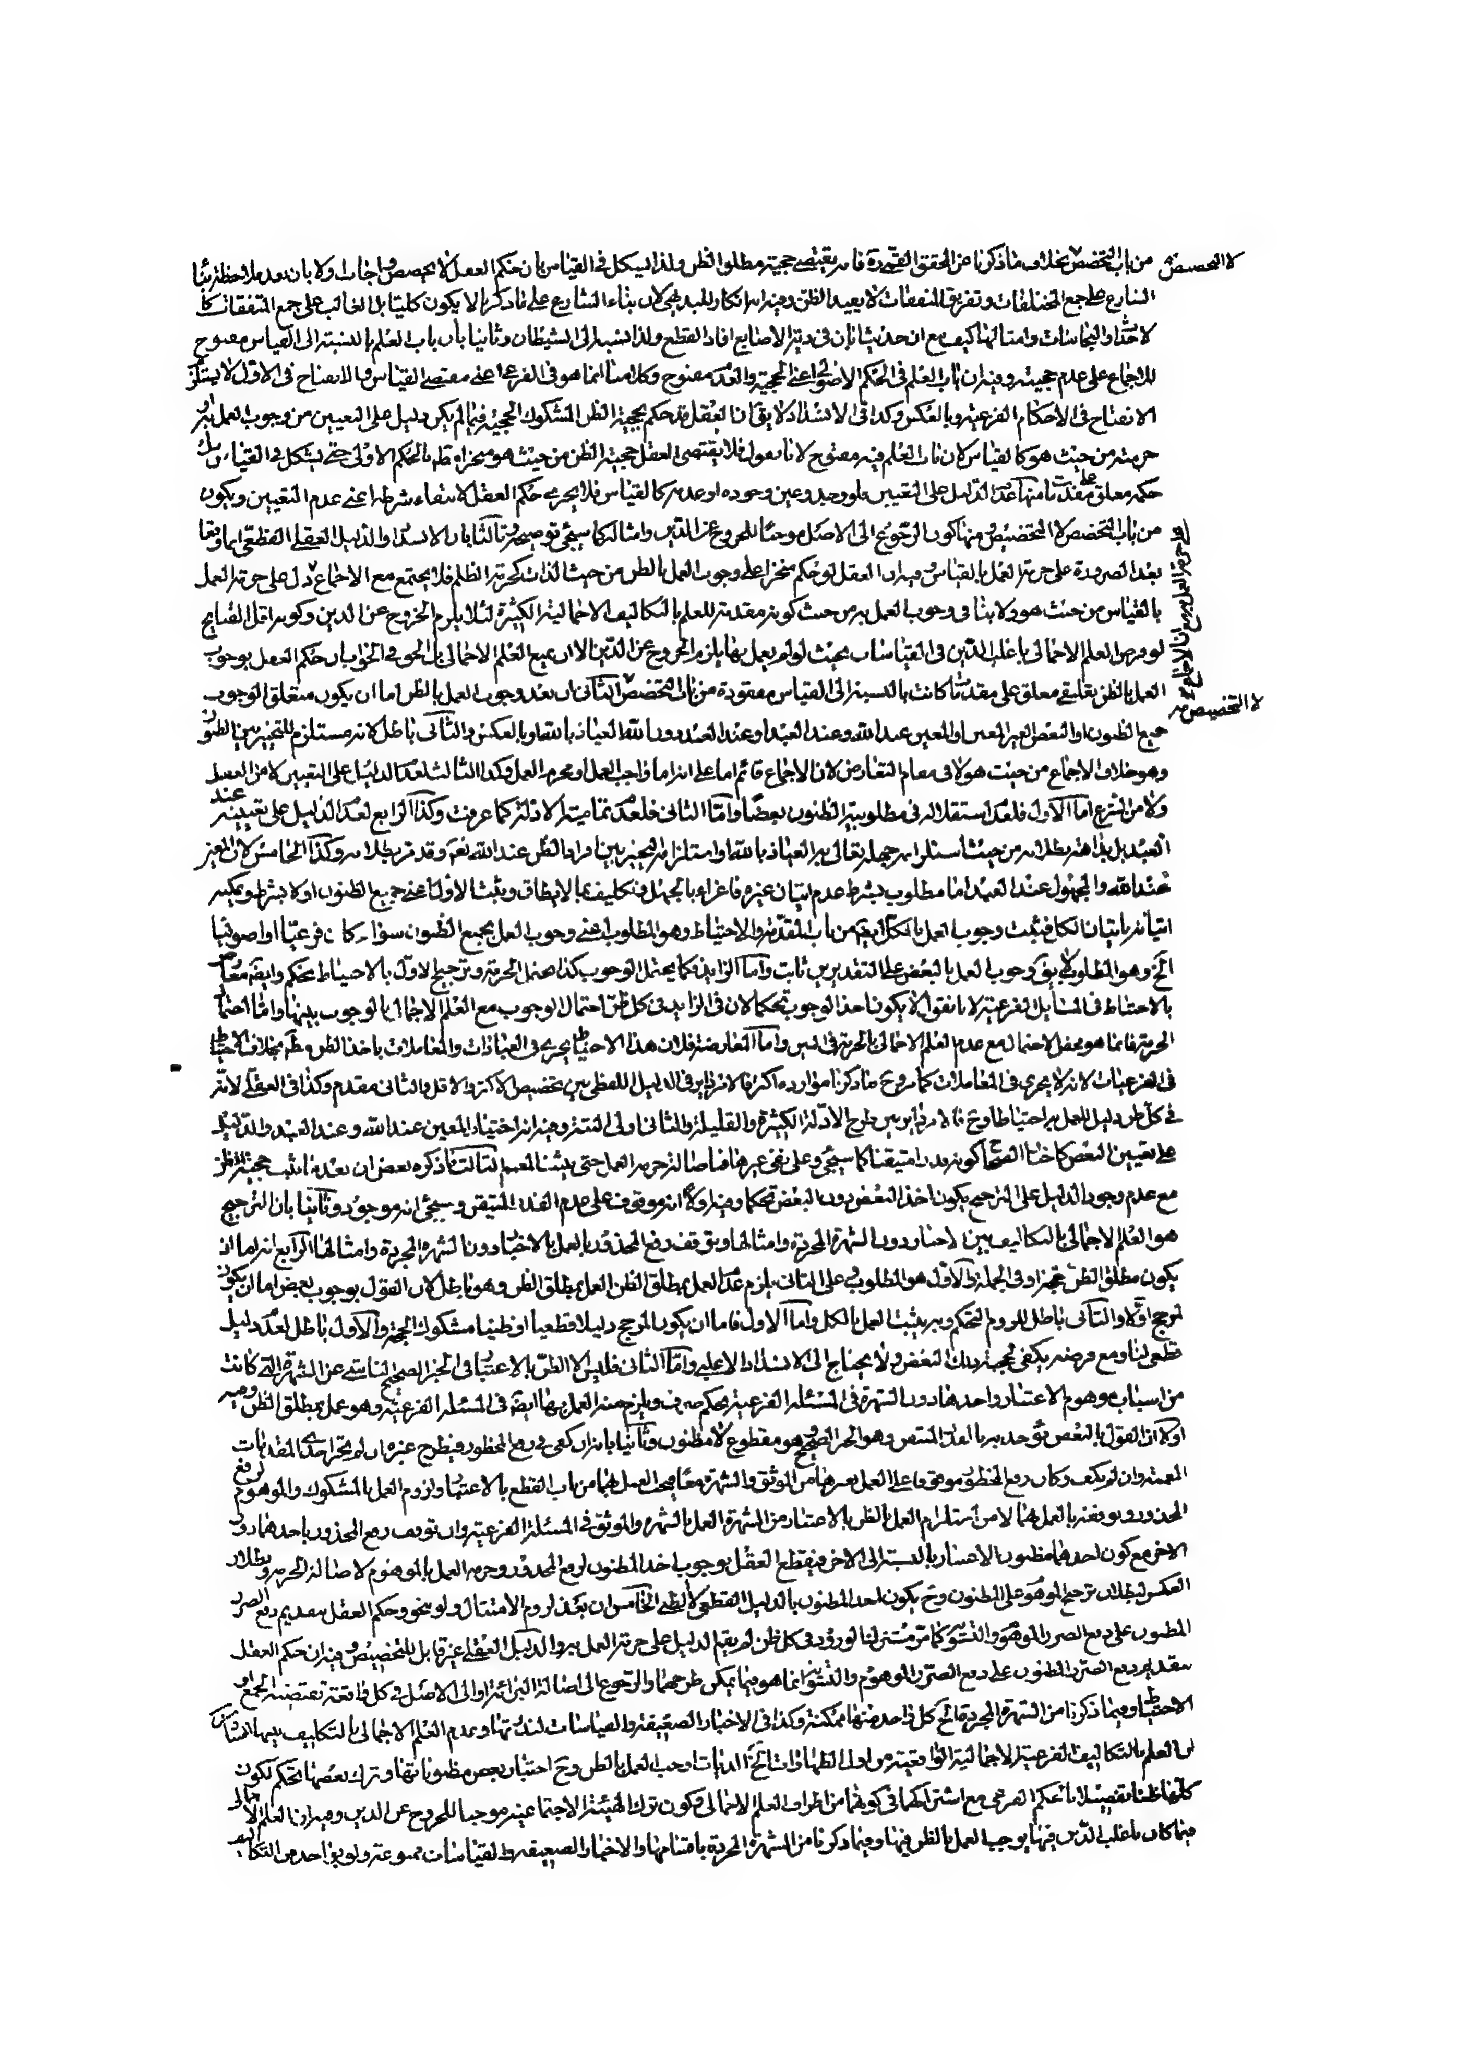 من باب التخصص بخلاف ما ذكرنا من المحقق القمي ره فانه يقتضي حجية مطلق الظن ولذا يشكل في القياس بان حكم العقل لا يخصص واجاب اولا بان بعد ملاحظة بناء
لا التخصيص
الشارع على جمع المختلفات وتفريق المتفقات لا يفيد الظن وفيه انه انكار للبديهي لان بناء الشارع على ما ذكر لا يكون كليا بل الغالب على جمع المتفقات كا
لاحداث والنجاسات وامثالها كيف مع ان حديث ابان في دية الاصابع افاد القطع ولذا نسبه الى الشيطان وثانيا بان باب العلم بالنسبة الى القياس مفتوح
للاجماع على عدم حجيته وفيه ان باب العلم في الحكم الاصولي اعني الحجية والعدم مفتوح وكلامنا انما هو في الفرعي اعني مقتضي القياس والانفتاح في الاول لا يستلز
الانفتاح في الاحكام الفرعية وبالعكس وكذا في الانسداد لا يقال ان العقل قد حكم بحجية الظن المشكوك الحجية فيما لم يكن دليل على التعيين من وجوب العمل به او
حرمته من حيث هو كالقياس لان باب العلم فيه مفتوح لانا نقول فلا يقتضي العقل حجية الظن من حيث هو منجزا وظ بالحكم الاولي حتى يشكل في القياس بل
حكمه معلق على مقدمات منها عدم الدليل على التعيين فلو وجد وعين وجوده او عدمه كالقياس فلا يجري حكم العقل لانتفاء شرطه اعني عدم التعيين ويكون
من باب التخصص لا التخصيص ومنها كون الرجوع الى الاصل موجبا للخروج عن الدين وامثاله كما سيجئ توضيحه وثالثا بان الانسداد والدليل العقلي القطعي
بعد الضرورة على حرمة العمل بالقياس وفيه ان العقل لو حكم منجزا على وجوب العمل بالظن من حيث الذات كحرمة الظلم فلا يجتمع مع الاجماع دل على حرمة العمل
بالقياس من حيث هو ولا ينافي وجوب العمل به من حيث كونه مقدمة للعلم بالتكاليف الاجمالية الكثيرة لئلا يلزم الخروج عن الدين وكونه اقل القبايح
لو فرض العلم الاجمالي باغلب الدين في القياسات بحيث لو لم يعمل بها يلزم الخروج عن الدين الا ان يمنع العلم الاجمالي بل الحق في الجواب ان حكم العقل بوجوب
العمل بالظن تعليقي معلق على مقدمات كانت بالنسبة الى القياس مفقودة من باب التخصص الثاني ان بعد وجوب العمل بالظن اما ان يكون متعلق الوجوب
لا التخصيص منه
جميع الظنون او البعض الغير المعين او المعين عند الله وعند العبد او عند العبد دون الله العياذ بالله او بالعكس والثاني باطل لانه مستلزم للتخيير بين الظنون
وهو خلاف الاجماع من حيث هو لا في مقام التعارض لان الاجماع قائم اما على انه اما واجب العمل او محرم العمل وكذا الثالث لعدم الدليل على التعيين لا من العقل
ولا من الشرع اما الاول فلعدم استقلاله في مطلوبية الظنون بعضا واما الثاني فلعدم تمامية الادلة كما عرفت وكذا الرابع لعدم الدليل على تعيينه عند
العبد بل بداهة بطلانه من حيث استلزامه جهله تعالى به العياذ بالله واستلزامه التخيير بين افراد الظن عند الله تعم وقد قر بطلانه وكذا الخامس لان المعين
عند الله والمجهول عند العبد اما مطلوب بشرط عدم اتيان غيره فاغراء بالجهل وتكليف بما لا يطاق ويثبت الاول اعني جميع الظنون او لا بشرط ويكون
اتيانه باتيان الكل فيثبت وجوب العمل بالكل ايضا من باب المقدمة والاحتياط وهو المطلوب اعني وجوب العمل بجميع الظنون سواء كان فرعيا او اصوليا
الخ وهو المطلوب لا يق وجوب العمل بالبعض على التقديرين ثابت واما الزايد فكما يحتمل الوجوب كذا يحتمل الحرمة وترجيح الاول بالاحتياط تحكم وايضا معارض
بالاحتياط في المسائل الفرعية لانا نقول لا يكون اخذ الوجوب تحكما لان في الزايد في كل ظن احتمال الوجوب مع العلم الاجمالي بالوجوب بينها واما احتمال
الحرمة فانما هو محض الاحتمال مع عدم العلم الاجمالي بالحرمة في البين واما المعارضة فلان هذا الاحتياط يجري في العبادات والمعاملات باخذ الظن وظ بخلاف الاحتياط
في الفرعيات لانه لا يجري في المعاملات كما مر وح ما ذكرنا موارده اكثر فالامر داير في الدليل اللفظي بين تخصيص الاكثر والاقل والثاني مقدم وكذا في العقلي لانه
في كل ظن دليل للعمل به احتياطا وح فالامر داير بين طرح الادلة الكثيرة والقليلة والثاني اولى البتة وفيه انه اختيار المعين عند الله وعند العبد والدليل
على تعيين البعض كاخبار الصحاح كونه قدرا متيقنا كما سيجئ وعلى نفي غيرها فاصالة حرمة العمل حتى يثبت التعميم الثالث ما ذكره بعض ان بعد ما ثبت حجية الظن
مع عدم وجود الدليل على الترجيح يكون اخذ البعض دون البعض تحكما وفيه اولا انه موقوف على عدم القدر المتيقن وسيجئ انه موجود وثانيا بان الترجيح
هو العلم الاجمالي بالتكاليف بين الاخبار دون الشهرة المجردة وامثالها وتوقف رفع المحذور بالعمل بالاخبار دون الشهرة المجردة وامثالها الرابع انه اما ان
يكون مطلق الظن حجة او في الجملة والاول هو المطلوب وعلى الثاني يلزم من عدم العمل بمطلق الظن العمل بمطلق الظن وهو باطل لان القول بوجوب بعض اما ان يكون
لمرجح اولا والثاني باطل للزوم التحكم وبه يثبت العمل بالكل واما الاول فاما ان يكون المرجح دليلا قطعيا او ظنيا مشكوك الحجية والاول باطل لعدم دليل
قطعي لنا ومع فرضه يكفي لحجية ذلك البعض ولا يحتاج الى الانسداد الاغلبي واما الثاني فليس الا الظن بالاعتبار في الخبر الصحيح لناشئ عن الشهرة التي كانت
من اسباب موهوم الاعتبار واحدها دون الشهرة في المسئلة الفرعية تحكم صرف ويلزم منه العمل بها ايضا في المسئلة الفرعية وهو عمل بمطلق الظن وفيه
اولا ان القول بالبعض يؤخذ به بالقدر المتيقن وهو الخبر الصحيح وهو مقطوع لا مظنون وثانيا بانه ان كفى في رفع المحظور فيطرح غيره ان لم يجر احدى المقدمات
المعينة وان لم يكف وكان رفع المحظور موقوفا على العمل بغيرها من الموثق والشهرة معا فيجب العمل بهما من باب القطع بالاعتبار ولزوم العمل بالمشكوك والموهوم لرفع
المحذور وتوقفه بالعمل بهما لا من استلزام العمل بالظن بالاعتبار من الشهرة العمل بالشهرة والموثق في المسئلة الفرعية وان توقف رفع المحذور باحدهما دون
الاخر مع كون احدهما مظنون الاعتبار بالنسبة الى الاخر فيقطع العقل بوجوب اخذ المظنون لرفع المحذور وحرمة العمل بالموهوم لاصالة الحرمة وبطلان
العكس لبطلان ترجيح الموهوم على المظنون وح يكون اخذ المظنون بالدليل القطعي لا الظني الخامس ان بعد لزوم الامتثال ولو بنحو وحكم العقل بتقديم دفع الضرر
المظنون على دفع الضرر الموهوم والمشكوك كما مر مستنبط لنا لزوره في كل ظن لم يقم الدليل على حرمة العمل به والدليل العقلي غير قابل للتخصيص وفيه ان حكم العقل
بتقديم دفع الضرر المظنون على دفع الضرر الموهوم والمشكوك انما هو فيما يمكن طرحهما والرجوع الى اصالة البرائة او الى الاصل في كل واقعة يقتضيه الجمع او
الاحتياط وفيما ذكرنا من الشهرة المجردة فالجمع كل واحد منها ممكنة وكذا في الاخبار الضعيفة والقياسات لندرتها وعدم العلم الاجمالي بالتكاليف بينها السادس
ان العلم بالتكاليف الفرعية الاجمالية الواقعية من اول الطهارات الى الديات اوجب العمل بالظن وح اختيار بعض مظنوناتها وترك بعضها تحكم لكون
كلها ظنا تفصيلا بالحكم الفرعي مع اشتراكها في كونها من اطراف العلم الاجمالي وكون ترك الهيئة الاجتماعية موجبا للخروج عن الدين وفيه ان العلم الاجمالي
فيما كان باغلب الدين فيها يوجب العمل بالظن فيها وفيما ذكرنا من الشهرة المجردة باقسامها والاخبار الضعيفة والقياسات ممنوعة ولو بق احد من التكاليف